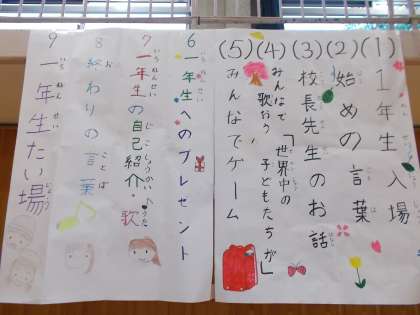 (1) 1年生入場
(2) 始めの言葉
(3) 校長先生のお話
(4) みんなで歌おう「世界中の子どもたちが」
(5) みんなでゲーム
6 一年生へのプレゼント
7 一年生の自己紹介・歌
8 終わりの言葉
9 一年生たい場